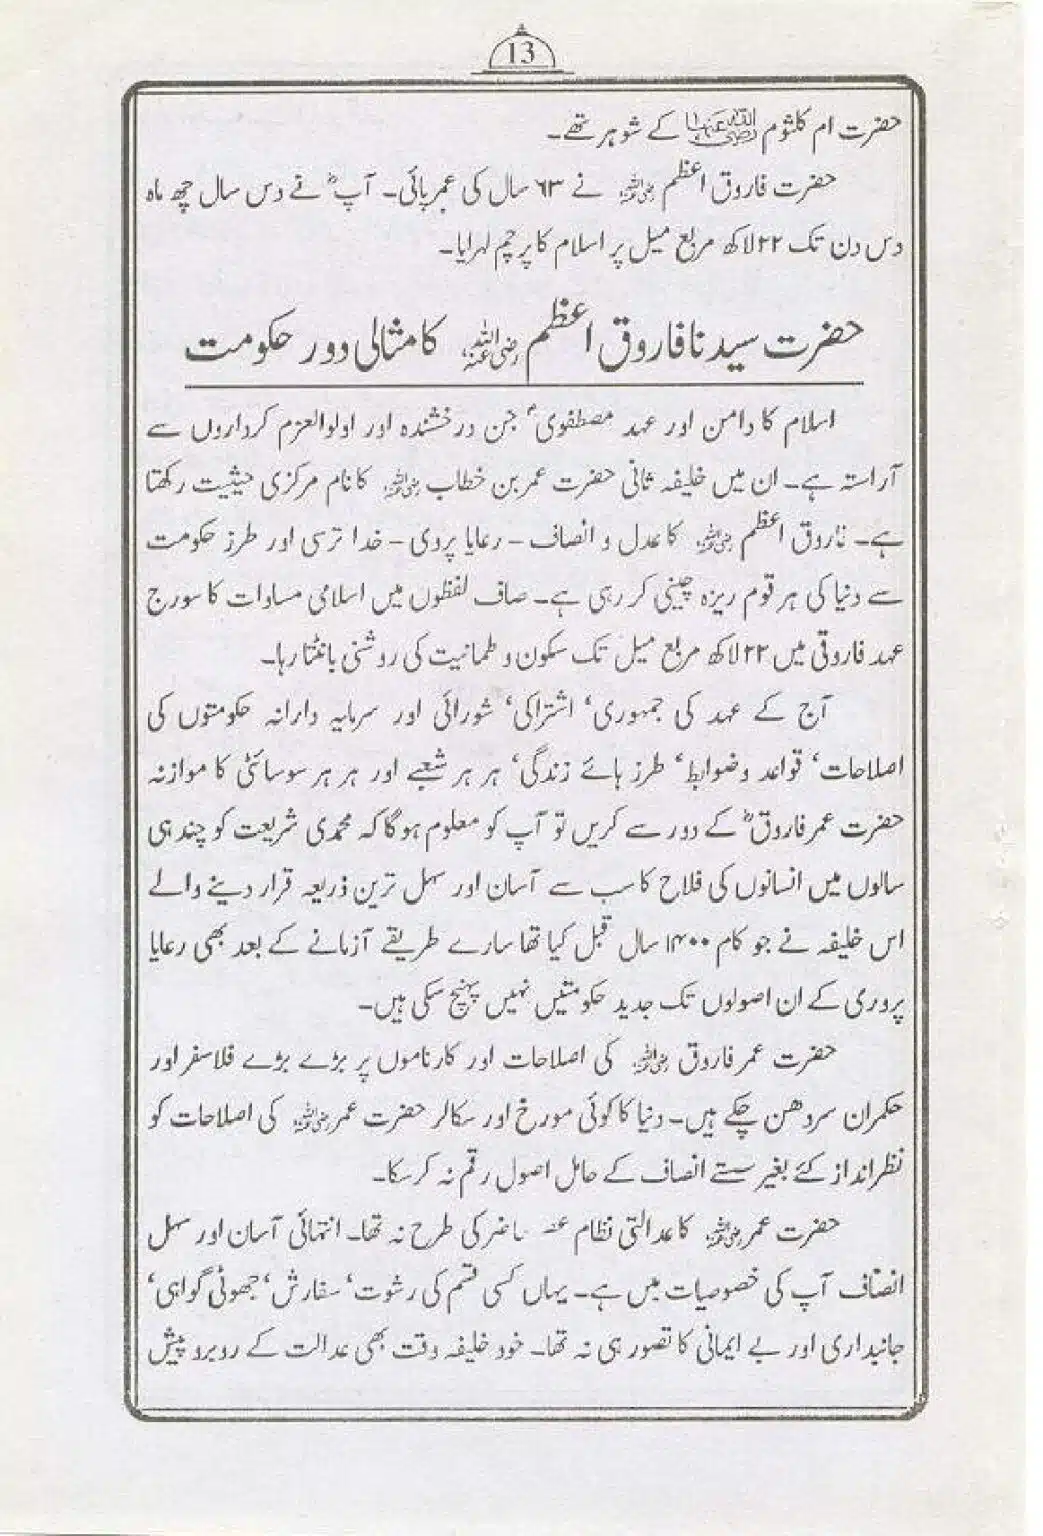 13
حضرت ام کلثوم رضی اللہ عنہا کے شوہر تھے۔
حضرت فاروق اعظم رضی اللہ عنہ نے ۶۳ سال کی عمر پائی۔ آپ ؓ نے دس سال چھ ماہ
دس دن تک ۲۲ لاکھ مربع میل پر اسلام کا پرچم لہرایا۔
حضرت سیدنا فاروق اعظم رضی اللہ عنہ کا مثالی دور حکومت
اسلام کا دامن اور عہد مصطفوی ؐ جن درخشندہ اور اولوالعزم کرداروں سے
آراستہ ہے۔ ان میں خلیفہ ثانی حضرت عمر بن خطاب رضی اللہ عنہ کا نام مرکزی حیثیت رکھتا
ہے۔ فاروق اعظم رضی اللہ عنہ کا عدل و انصاف – رعایا پروی – خدا ترسی اور طرز حکومت
سے دنیا کی ہر قوم ریزہ چینی کر رہی ہے۔ صاف لفظوں میں اسلامی مساوات کا سورج
عہد فاروقی میں ۲۲ لاکھ مربع میل تک سکون و طمانیت کی روشنی بانٹتا رہا۔
آج کے عہد کی جمہوری‘ اشتراکی‘ شورائی اور سرمایہ دارانہ حکومتوں کی
اصلاحات‘ قواعد و ضوابط‘ طرز ہائے زندگی‘ ہر ہر شعبے اور ہر ہر سوسائٹی کا موازنہ
حضرت عمر فاروق ؓ کے دور سے کریں تو آپ کو معلوم ہو گا کہ محمدی شریعت کو چند ہی
سالوں میں انسانوں کی فلاح کا سب سے آسان اور سہل ترین ذریعہ قرار دینے والے
اس خلیفہ نے جو کام ۱۴۰۰ سال قبل کیا تھا سارے طریقے آزمانے کے بعد بھی رعایا
پروری کے ان اصولوں تک جدید حکومتیں نہیں پہنچ سکی ہیں۔
حضرت عمر فاروق رضی اللہ عنہ کی اصلاحات اور کارناموں پر بڑے بڑے فلاسفر اور
حکمران سر دھن چکے ہیں۔ دنیا کا کوئی مورخ اور سکالر حضرت عمر رضی اللہ عنہ کی اصلاحات کو
نظر انداز کئے بغیر سستے انصاف کے حامل اصول رقم نہ کر سکا۔
حضرت عمر رضی اللہ عنہ کا عدالتی نظام عصر حاضر کی طرح نہ تھا۔ انتہائی آسان اور سہل
انصاف آپ کی خصوصیات میں ہے۔ یہاں کسی قسم کی رشوت‘ سفارش‘ جھوٹی گواہی‘
جانبداری اور بے ایمانی کا تصور ہی نہ تھا۔ خود خلیفہ وقت بھی عدالت کے روبرو پیش